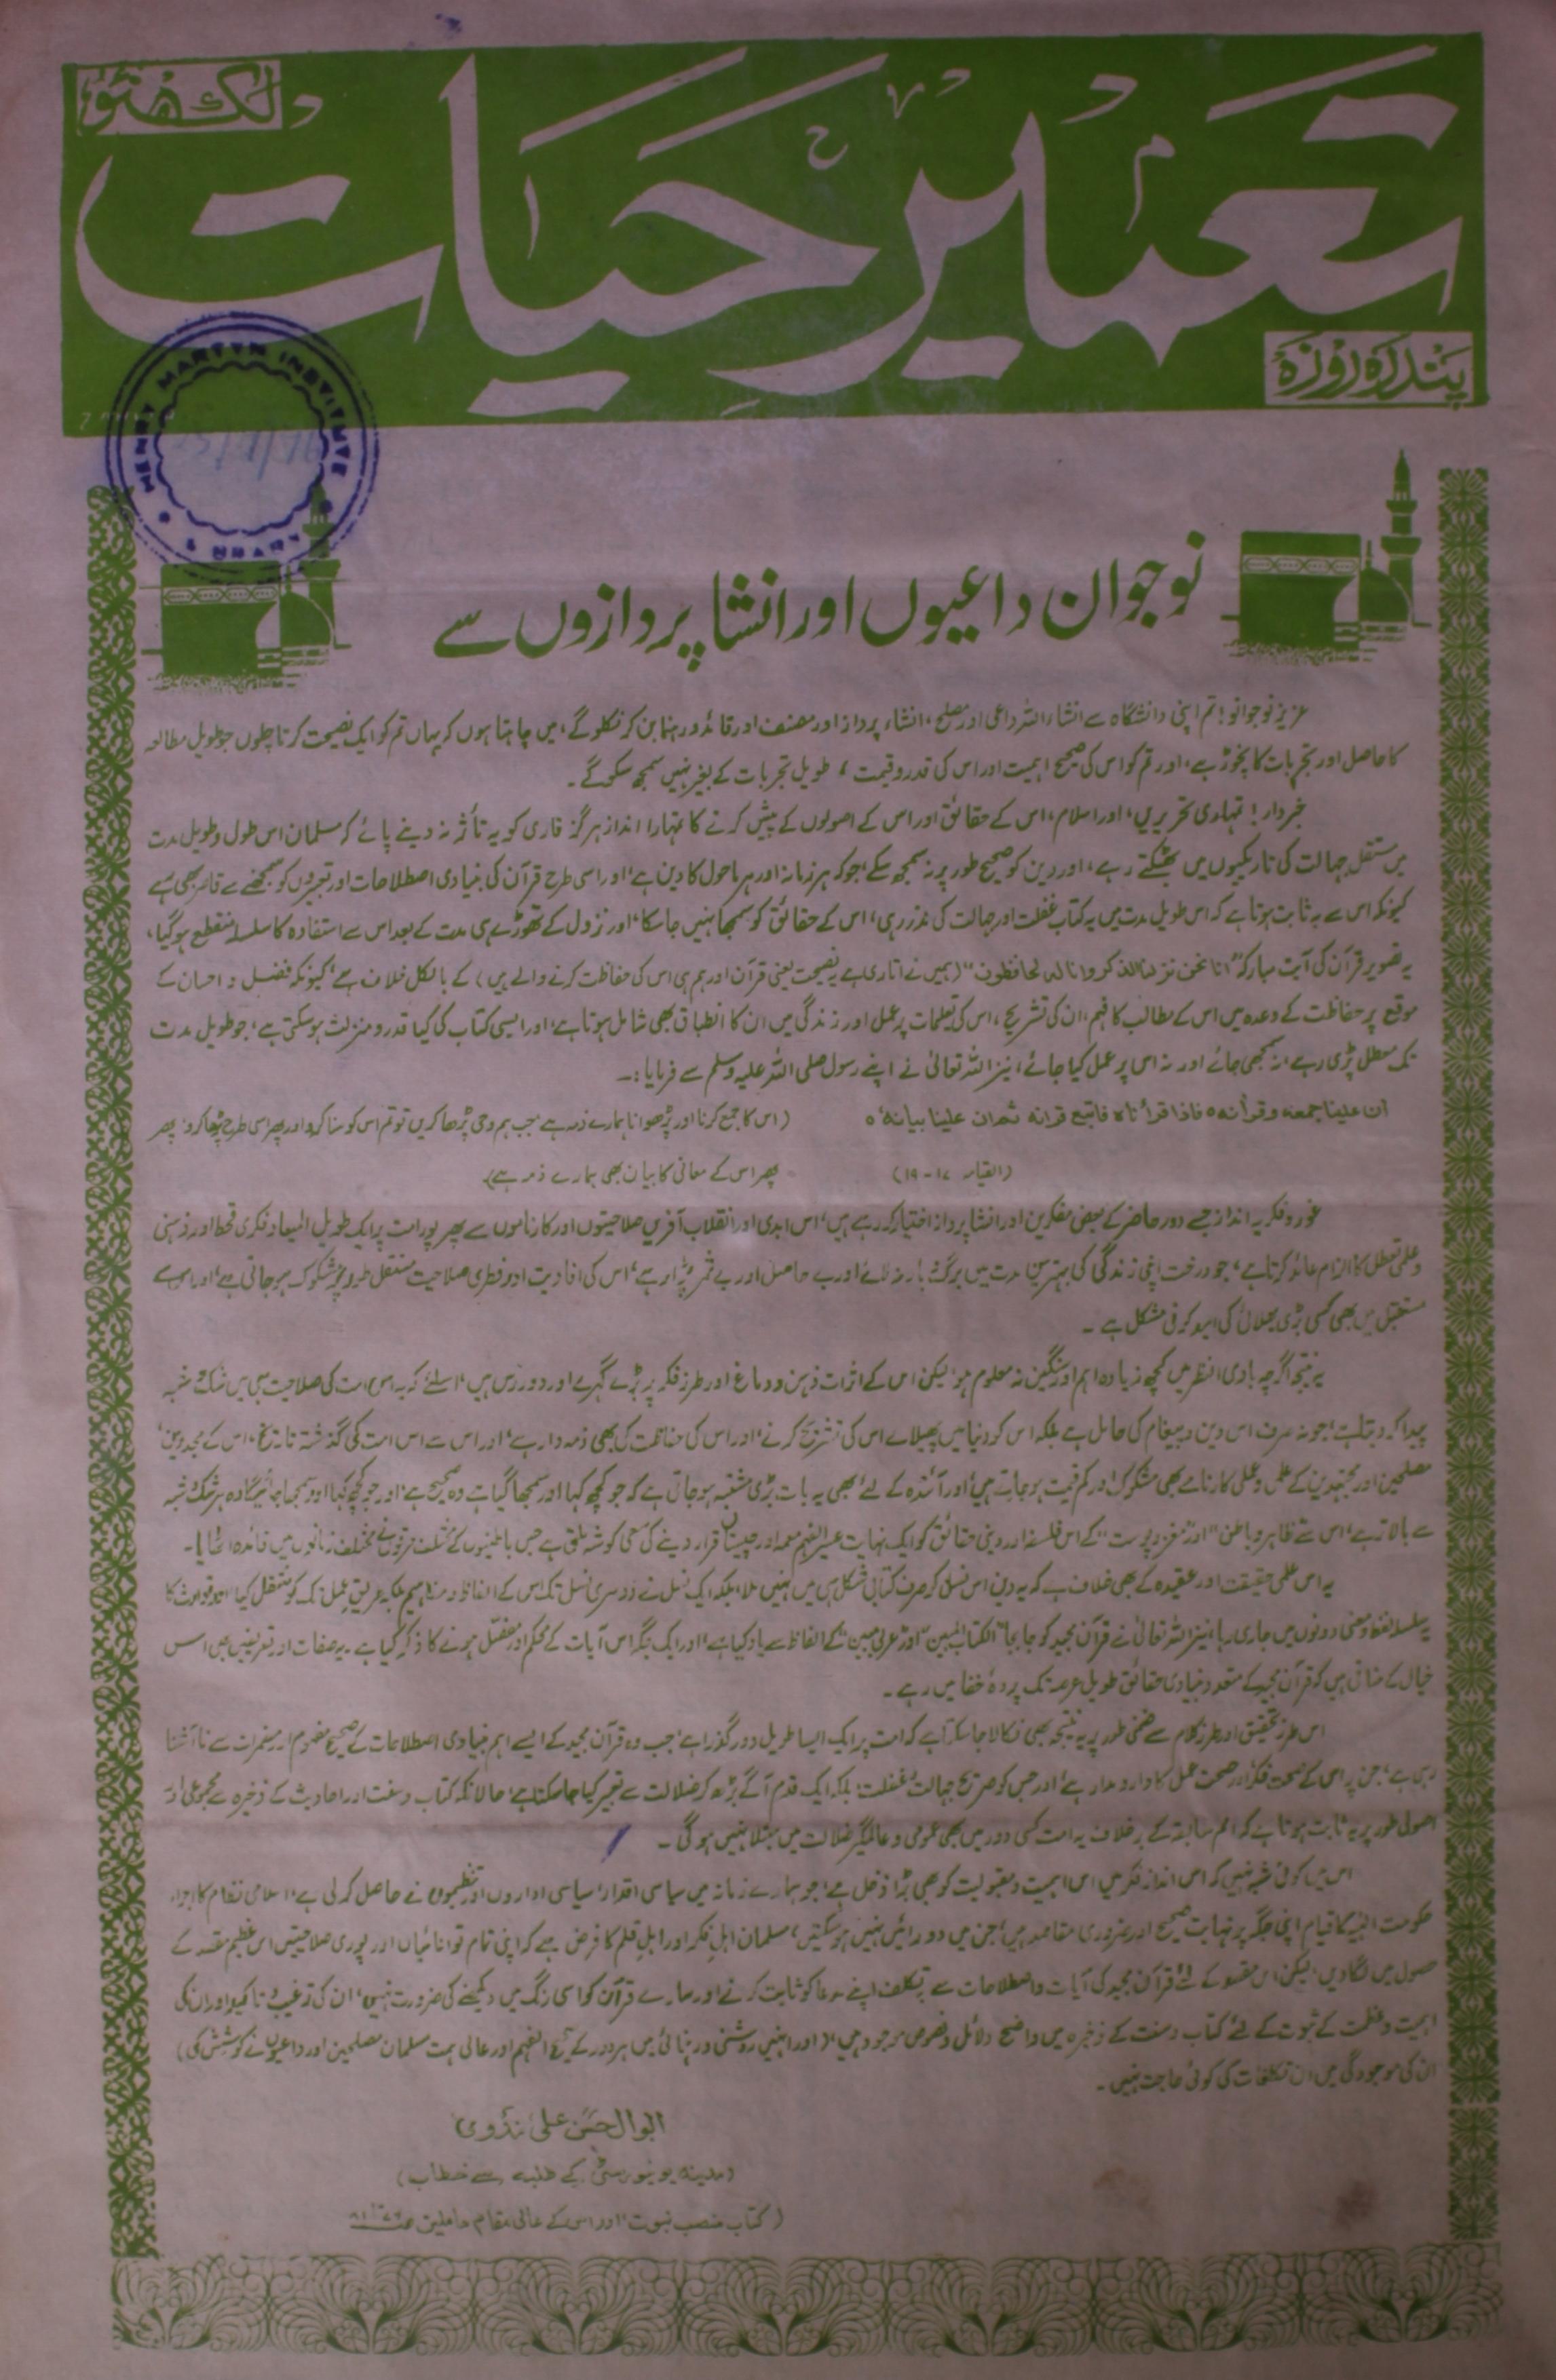 لکھنؤ
تعمیر حیات
پندرہ روزہ
HENRY MARTYN INSTITUTE
LIBRARY
نوجوان داعیوں اور انشا پردازوں سے
عزیز نوجوانو! تم اپنی دانشگاہ سے انشاء اللہ داعی اور مصلح، انشاء پرداز اور مصنف اور قائد و رہنما بن کر نکلو گے، میں چاہتا ہوں کہ یہاں تم کو ایک نصیحت کرتا چلوں جو طویل مطالعہ
کا حاصل اور تجربات کا نچوڑ ہے، اور تم کو اس کی صحیح اہمیت اور اس کی قدر و قیمت، طویل تجربات کے بغیر نہیں سمجھ سکو گے۔
خبردار! تمہاری تحریریں، اور اسلام، اس کے حقائق اور اس کے اصولوں کے پیش کرنے کا تمہارا انداز ہرگز قاری کو یہ تأثر نہ دینے پائے کہ مسلمان اس طول و طویل مدت
میں مستقل جہالت کی تاریکیوں میں بھٹکتے رہے، اور دین کو صحیح طور پر نہ سمجھ سکے، جو کہ ہر زمانہ اور ہر ماحول کا دین ہے، اور اسی طرح قرآن کی بنیادی اصطلاحات اور تعبیروں کو سمجھنے سے قاصر بھی رہے
کیونکہ اس سے یہ ثابت ہوتا ہے کہ اس طویل مدت میں یہ کتاب غفلت اور جہالت کی نذر رہی، اس کے حقائق کو سمجھا نہیں جا سکا، اور نزول کے تھوڑے ہی مدت کے بعد اس سے استفادہ کا سلسلہ منقطع ہو گیا،
یہ تصویر قرآن کی آیت مبارکہ "انا نحن نزلنا الذکر وانا لہ لحافظون" (ہمیں نے اتاری ہے یہ نصیحت یعنی قرآن اور ہم ہی اس کی حفاظت کرنے والے ہیں) کے بالکل خلاف ہے، کیونکہ فضل و احسان کے
موقع پر حفاظت کے وعدہ میں اس کے مطالب کا فہم، ان کی تشریح، اس کی تعلیمات پر عمل اور زندگی میں ان کا انطباق بھی شامل ہوتا ہے، اور ایسی کتاب کی کیا قدر و منزلت ہو سکتی ہے، جو طویل مدت
تک معطل پڑی رہے، نہ سمجھی جائے اور نہ اس پر عمل کیا جائے، نیز اللہ تعالیٰ نے اپنے رسول صلی اللہ علیہ وسلم سے فرمایا:۔
ان علینا جمعہ وقرآنہ ٥ فاذا قرأناہ فاتبع قرآنہ ثم ان علینا بیانہ ٥ (اس کا جمع کرنا اور پڑھوانا ہمارے ذمہ ہے جب ہم وحی پڑھا کریں تو تم اس کو سنا کرو اور پھر اسی طرح پڑھا کرو، پھر
(القیامہ ۱۷-۱۹) پھر اس کے معانی کا بیان بھی ہمارے ذمہ ہے)
غور و فکر یہ انداز جسے دور حاضر کے بعض مفکرین اور انشا پرداز اختیار کر رہے ہیں، اس ابدی اور انقلاب آفریں صلاحیتوں اور کارناموں سے بھرپور امت پر ایک طویل المیعاد فکری قحط اور ذہنی
و علمی تعطل کا الزام عائد کرتا ہے، جو درخت اپنی زندگی کی بہترین مدت میں برگ و بار نہ لائے اور بے حاصل اور بے ثمر پڑا رہے، اس کی افادیت اور فطری صلاحیت مستقل طور پر مشکوک ہو جاتی ہے، اور اس سے
مستقبل میں بھی کسی بڑی بھلائی کی امید کرنی مشکل ہے۔
یہ نتیجہ اگرچہ بادی النظر میں کچھ زیادہ اہم اور سنگین نہ معلوم ہو، لیکن اس کے اثرات ذہن و دماغ اور طرز فکر پر بڑے گہرے اور دور رس ہیں، اسلئے کہ یہ اس امت کی صلاحیت ہی میں شک و شبہ
پیدا کر دیتا ہے، جو نہ صرف اس دین و پیغام کی حامل ہے بلکہ اس کو دنیا میں پھیلانے اس کی تشریح کرنے، اور اس کی حفاظت کی بھی ذمہ دار ہے، اور اس سے اس امت کی گذشتہ تاریخ، اس کے مجددین،
مصلحین اور مجتہدین کے علمی و عملی کارنامے بھی مشکوک اور کم قیمت ہو جاتے ہیں، اور آئندہ کے لئے بھی یہ بات بڑی مشتبہ ہو جاتی ہے کہ جو کچھ کہا اور سمجھا گیا ہے وہ صحیح ہے، اور جو کچھ کہا اور سمجھا جائیگا وہ ہر شک و شبہ
سے بالاتر ہے، اس سے ظاہر و باطن "اور مغز و پوست" کے اس فلسفہ اور دینی حقائق کو ایک نہایت عسیر الفہم معمہ اور چیستاں قرار دینے کی سعی کو شہ ملتی ہے جس باطنیوں کے مختلف فرقوں نے مختلف زمانوں میں فائدہ اٹھایا۔
یہ اس علمی حقیقت اور عقیدہ کے بھی خلاف ہے کہ یہ دین اس نسل کو صرف کتابی شکل ہی میں نہیں ملا، بلکہ ایک نسل نے دوسری نسل تک اس کے الفاظ و مفاہیم بلکہ طریق عمل تک کو منتقل کیا، اور توارث کا
یہ سلسلہ لفظ و معنی دونوں میں جاری رہا، نیز اللہ تعالیٰ نے قرآن مجید کو جابجا "الکتاب المبین" اور "عربی مبین" کے الفاظ سے یاد کیا ہے، اور ایک جگہ اس آیات کے محکم اور مفصل ہونے کا ذکر کیا ہے۔ یہ صفات اور تعریفیں بھی اس
خیال کے منافی ہیں کہ قرآن مجید کے متعدد بنیادی حقائق طویل عرصہ تک پردۂ خفا میں رہے۔
اس طرز تحقیق اور طرز کلام سے ضمنی طور پر یہ نتیجہ بھی نکالا جا سکتا ہے کہ امت پر ایک ایسا طویل دور گذرا ہے، جب وہ قرآن مجید کے ایسے اہم بنیادی اصطلاحات کے صحیح مفہوم اور مضمرات سے ناآشنا
رہی ہے، جن پر اس کے صحت فکر اور صحت عمل کا دارومدار ہے، اور جس کو صریح جہالت و غفلت، بلکہ ایک قدم آگے بڑھ کر ضلالت سے تعبیر کیا جا سکتا ہے، حالانکہ کتاب و سنت اور احادیث کے ذخیرہ سے مجموعی اور
اصولی طور پر یہ ثابت ہوتا ہے کہ امم سابقہ کے برخلاف یہ امت کسی دور میں بھی عمومی و عالمگیر ضلالت میں مبتلا نہیں ہو گی۔
اس میں کوئی شبہ نہیں کہ اس انداز فکر میں اس اہمیت و مقبولیت کو بھی بڑا دخل ہے جو ہمارے زمانہ میں سیاسی اقدار، سیاسی اداروں اور تنظیموں نے حاصل کر لی ہے، اسلامی نظام کا اجراء
حکومت الٰہیہ کا قیام اپنی جگہ پر نہایت صحیح اور ضروری مقاصد ہیں، جن میں دو رائیں نہیں ہو سکتیں، مسلمان اہل فکر اور اہل قلم کا فرض ہے کہ اپنی تمام توانائیاں اور پوری صلاحیتیں اس عظیم مقصد کے
حصول میں لگا دیں، لیکن اس مقصد کے لئے قرآن مجید کی آیات و اصطلاحات سے بتکلف اپنے مدعا کو ثابت کرنے اور سارے قرآن کو اسی رنگ میں دیکھنے کی ضرورت نہیں، ان کی ترغیب و تاکید اور ان کی
اہمیت و عظمت کے ثبوت کے لئے کتاب و سنت کے ذخیرہ میں واضح دلائل و نصوص موجود ہیں، (اور انہیں روشنی و رہنمائی میں ہر دور کے صحیح الفہم اور عالی ہمت مسلمان مصلحین اور داعیوں نے کوشش کی)
ان کی موجودگی میں ان تکلفات کی کوئی حاجت نہیں۔
ابوالحسن علی ندوی
(مدینہ یونیورسٹی کے طلبہ سے خطاب)
(کتاب منصب نبوت "اور اس کے عالی مقام حاملین"